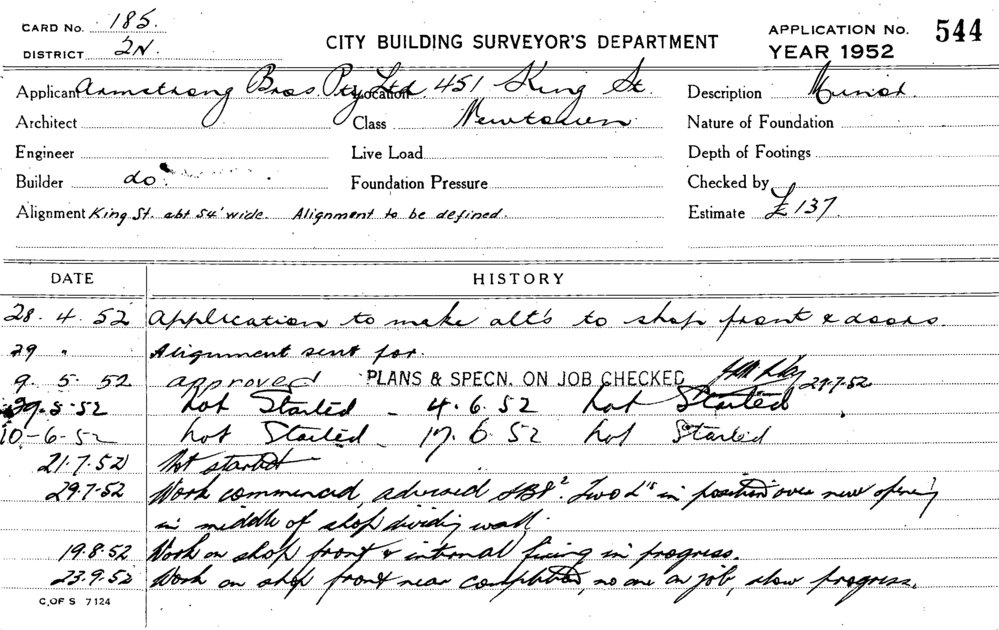 CARD No. 185. CITY BUILDING SURVEYOR'S DEPARTMENT APPLICATION No. 544
DISTRICT 2N. YEAR 1952
Applicant Armstrong Bros. Pty Ltd Location 451 King St. Description Minor.
Architect Class Newtown Nature of Foundation
Engineer Live Load Depth of Footings
Builder do. Foundation Pressure Checked by
Alignment King St. abt 54' wide. Alignment to be defined. Estimate £137.
DATE HISTORY
28. 4. 52 Application to make alt's to shop front & doors.
29 " Alignment sent for.
9. 5. 52 approved PLANS & SPECN. ON JOB CHECKED 29.7.52
29.5.52 Not Started - 4.6.52 Not Started
10-6-52 Not Started - 17.6.52 Not Started
21.7.52 Not started
29.7.52 Work commenced, advised Two L's in position over new opening
in middle of shop dividing wall.
19.8.52 Work on shop front & internal fixing in progress.
23.9.52 Work on shop front near completed, no one on job, slow progress.
C. OF S 7124